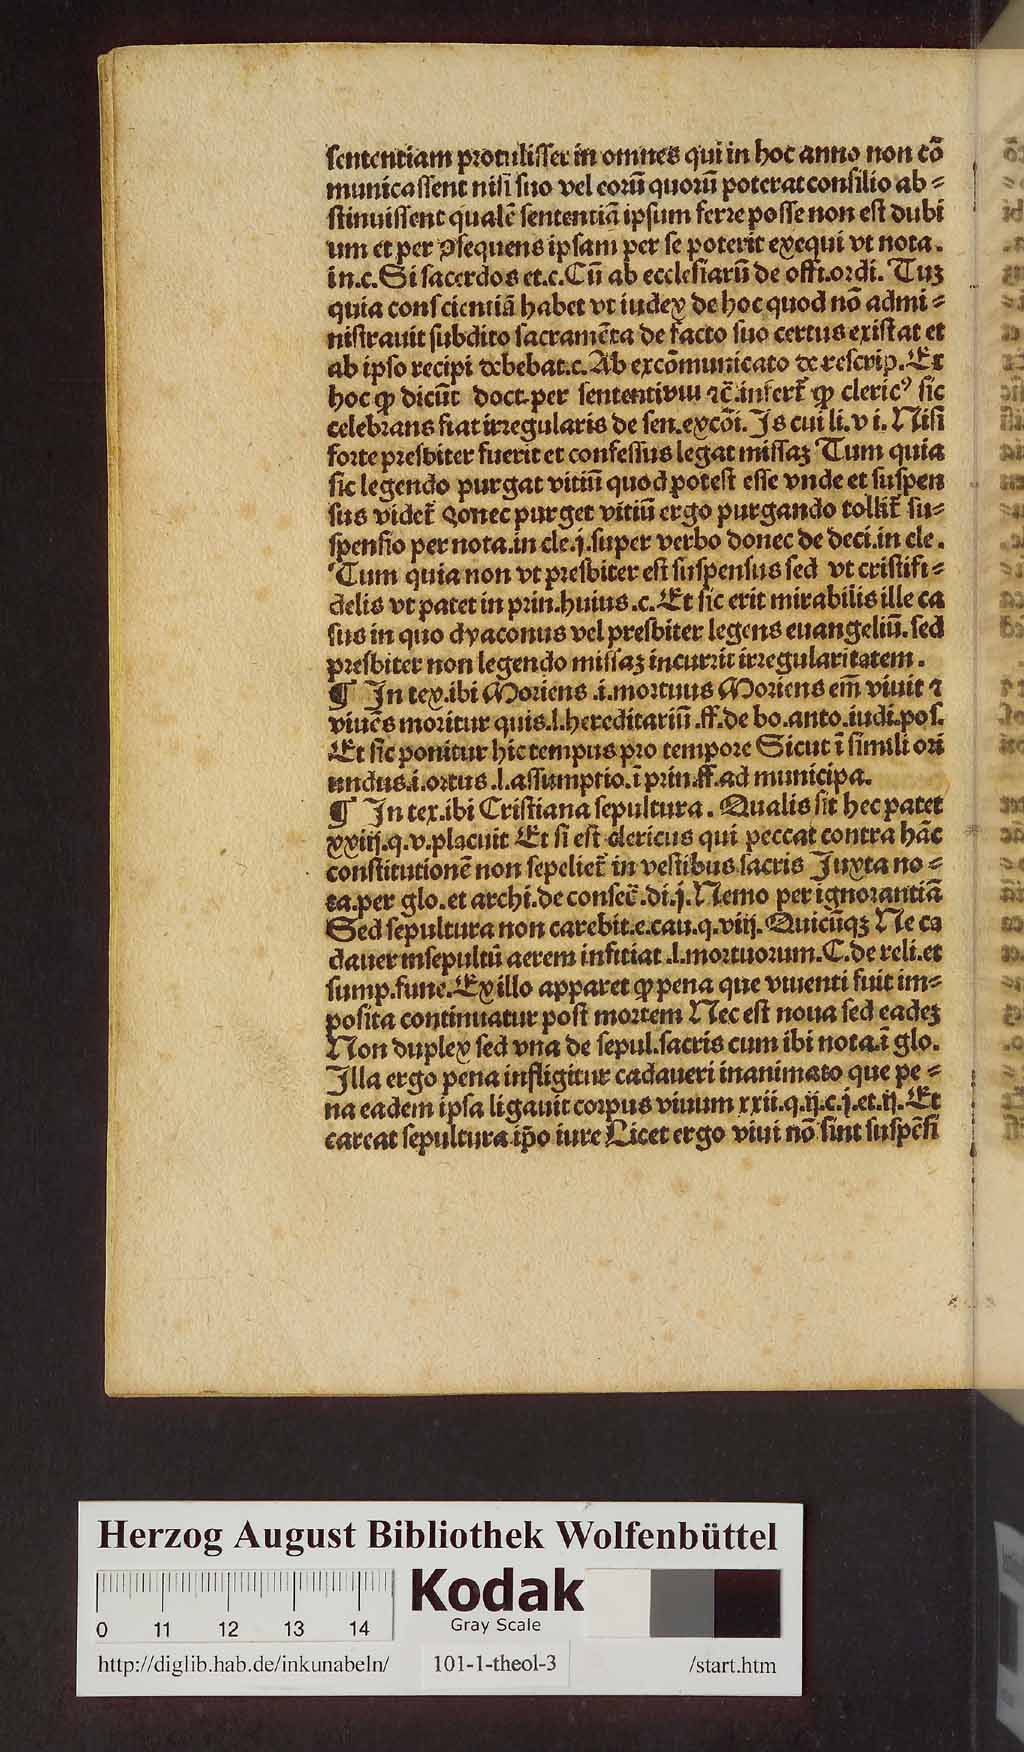 sententiam protulisset in omnes qui in hoc anno non cō
municassent nisi suo vel eorū quorū poterat consilio ab=
stinuissent qualē sententiā ipsum ferre posse non est dubi
um et per ꝯsequens ipsam per se poterit exequi vt nota.
in.c.Si sacerdos et.c.Cū ab ecclesiarū de offi.ordi. Tuʒ
quia conscientiā habet vt iudex de hoc quod nō admi=
nistrauit subdito sacramēta de facto suo certus existat et
ab ipso recipi debebat.c.Ab excōmunicato de rescrip.Ex
hoc ꝙ dicūt doct.per sententivm ⁊c̄.infert̄ ꝙ cleric⁹ sic
celebrans fiat irregularis de sen.excōi. Is cui li.vi. Nisi
forte presbiter fuerit et confessus legat missaʒ Tum quia
sic legendo purgat vitiū quod potest esse vnde et suspen
sus videt̄ donec purget vitiū ergo purgando tollit̄ su=
spensio per nota.in cle.j.super verbo donec de deci.in cle.
Tum quia non vt presbiter est suspensus sed vt cristifi=
delis vt patet in prin.huius.c.Et sic erit mirabilis ille ca
sus in quo dyaconus vel presbiter legens euangeliū.sed
presbiter non legendo missaʒ incurrit irregularitatem.
¶ In tex.ibi Moriens .i.mortuus Moriens em̄ viuit ⁊
viuēs moritur quis.l.hereditariū.ff.de bo.auto.iudi.pos.
Et sic ponitur hic tempus pro tempore Sicut ī simili ori
undus.i.ortus .l.assumptio.ī prin.ff.ad municipa.
¶ In tex.ibi Cristiana sepultura. Qualis sit hec patet
xxiij.q.v.placuit Et si est clericus qui peccat contra hāc
constitutionē non sepeliet̄ in vestibus sacris Juxta no=
ta.per glo.et archi.de consec̄.di.j.Nemo per ignorantiā
Sed sepultura non carebit.e.cau.q.viij.Quicūqʒ Ne ca
dauer insepultū aerem infitiat .l.mortuorum.C.de reli.et
sump.fune.Ex illo apparet ꝙ pena que viuenti fuit im=
posita continuatur post mortem Nec est noua sed eadeʒ
Non duplex sed vna de sepul.sacris cum ibi nota.ī glo.
Illa ergo pena infligitur cadaueri inanimato que pe=
na eadem ipsa ligauit corpus viuum xxii.q.ij.c.j.et.ij.Et
careat sepultura ip̄o iure Licet ergo viui nō sint suspēsi
Herzog August Bibliothek Wolfenbüttel
Kodak
Gray Scale
0 11 12 13 14
http://diglib.hab.de/inkunabeln/ 101-1-theol-3 /start.htm